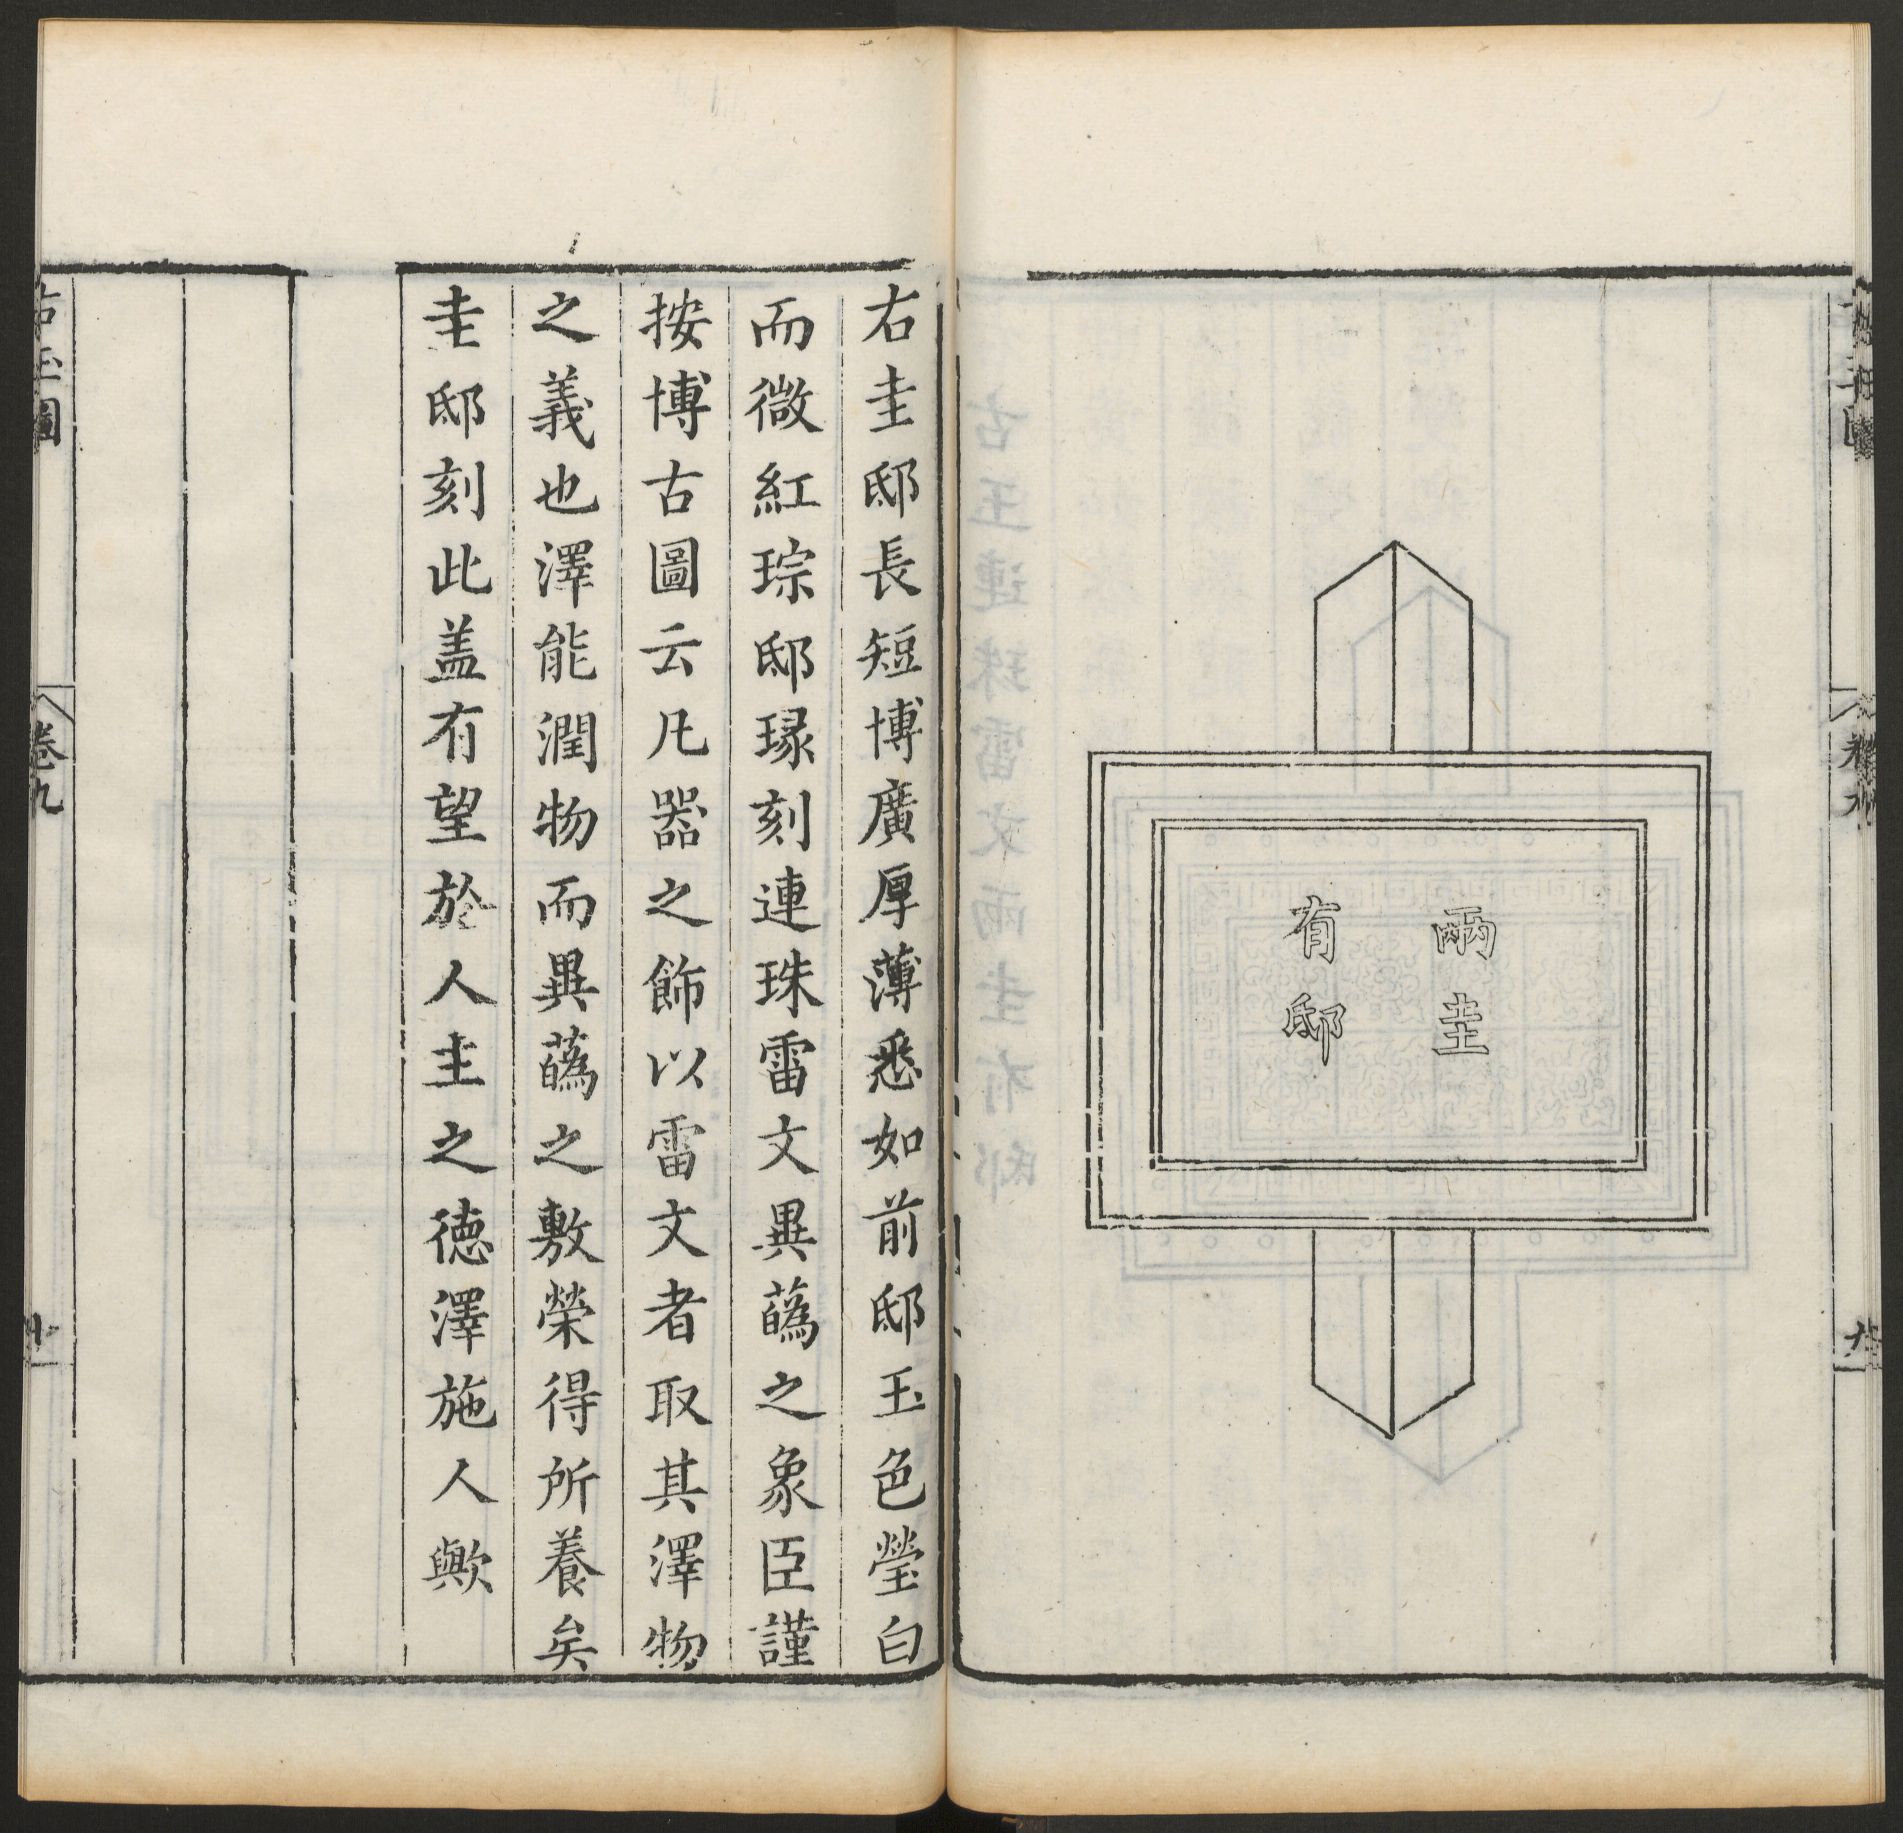 兩圭
有邸
右圭邸長短博廣厚薄悉如前邸玉色瑩白
而微紅琮邸瑑刻連珠雷文異蘤之象臣謹
按博古圖云凡器之飾以雷文者取其澤物
之義也澤能潤物而異蘤之敷榮得所養矣
圭邸刻此盖有望於人主之德澤施人歟
古玉圖
卷九